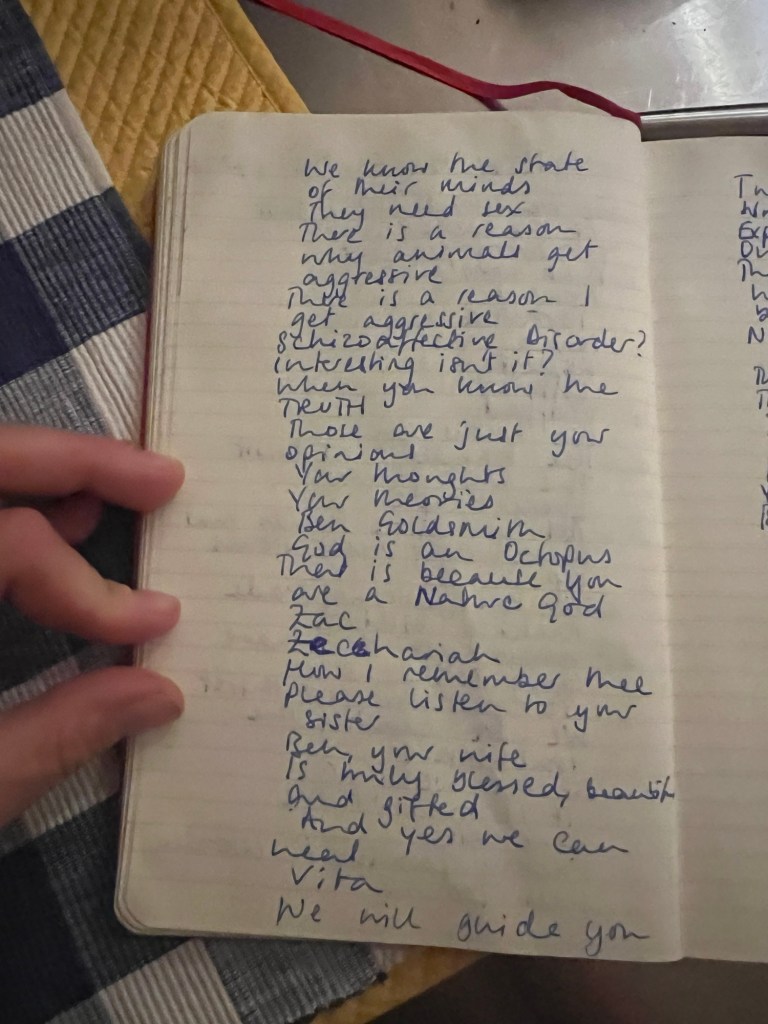 We know the state
of their minds
They need sex
There is a reason
why animals get
aggressive
There is a reason I
get aggressive
Schizoaffective Disorder?
interesting isn't it?
When you know the
TRUTH
Those are just your
opinions
Your thoughts
Your theories
Ben Goldsmith
God is an Octopus
That is because you
are a Nature God
Zac
Zecchariah
How I remember thee
Please listen to your
sister
Ben, your wife
Is truly blessed, beautiful
and gifted
And yes we can
heal
Vita
We will guide you